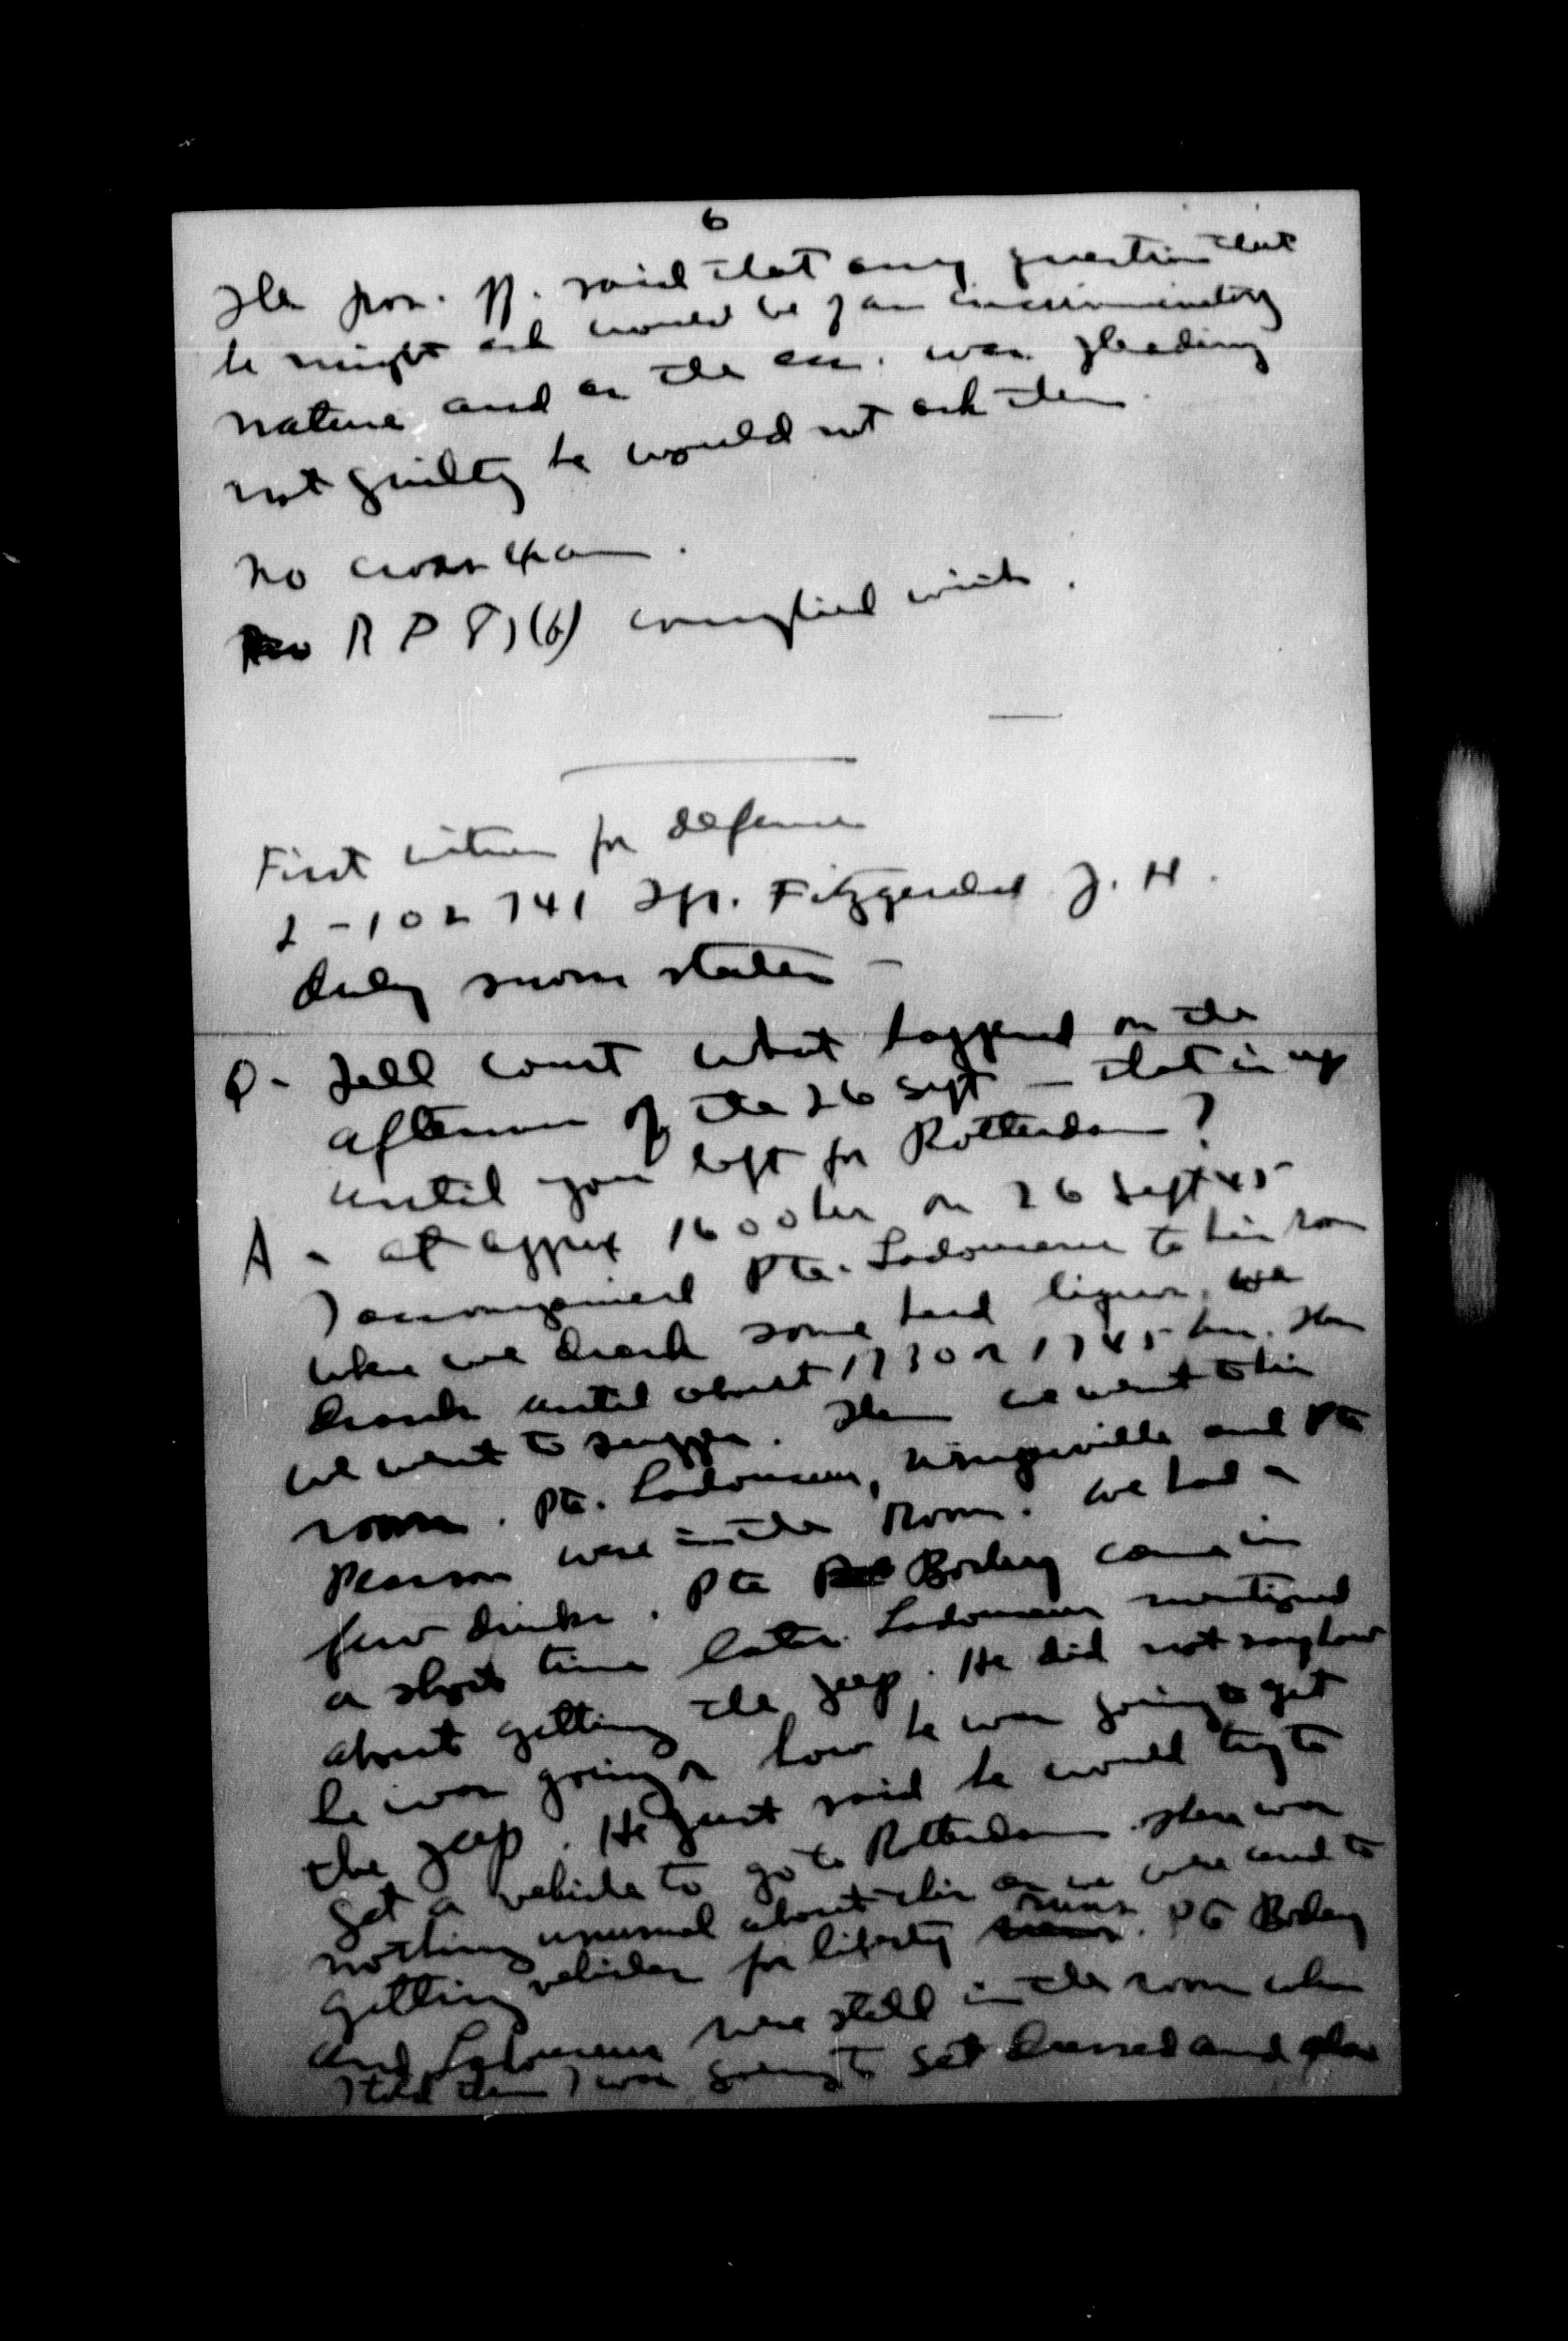 6
The pros. offr. said that any question that
he might ask would be of an incriminating
nature and as the acc. was pleading
not guilty he would not ask them.
No cross exam.
R P 83(b) complied with.
First witness for defence
Fitzgerald J. H.
duly sworn states -
Q - Tell court what happened on the
afternoon of the 26 Sept - that is up
until you left for Rotterdam?
A - at approx 1600 hrs on 26 Sept 45
I accompanied Pte. Ladouceur to his room
where we drank some hard liquor, we
drank until about 1730 or 1745 hrs. Then
we went to supper. Then we went to his
room. Pte. Ladouceur, and Pte
Pearson were in the room. We had a
few drinks. Pte came in
a short time later. Ladouceur mentioned
about getting the jeep. He did not say how
he was going or how he was going to get
the jeep. He just said he would try to
get a vehicle to go to Rotterdam. There was
nothing unusual about this as we were used to
getting vehicles for liberty runs. Pte
and Ladouceur were still in the room when
I told them I was going to get dressed and